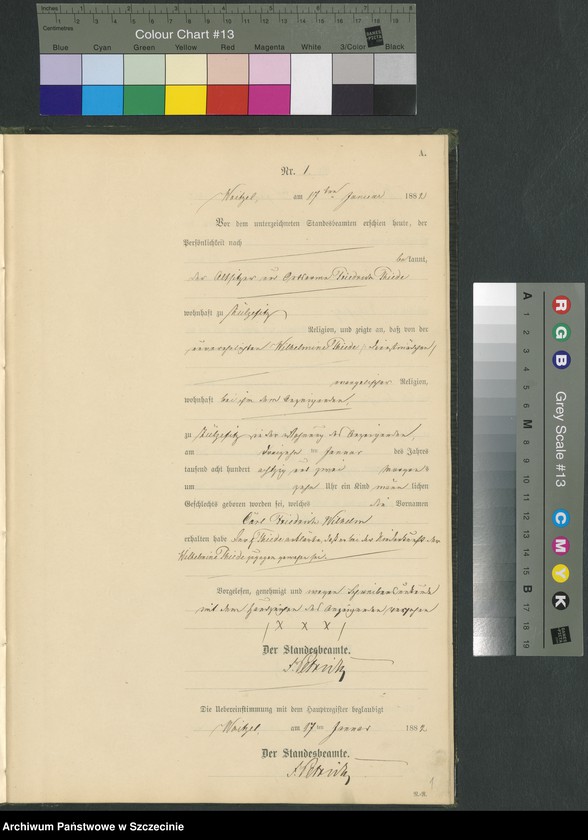 Inches 1 2 3 4 5 6 7 8
Centimetres
Colour Chart #13
Blue Cyan Green Yellow Red Magenta White 3/Color Black
A.
Nr. 1.
am 17ten Januar 1882
Vor dem unterzeichneten Standesbeamten erschien heute, der
Persönlichkeit nach
bekannt,
der Altsitzer und Friedrich Thiede
wohnhaft zu
Religion, und zeigte an, daß von der
unverehelichten Wilhelmine Thiede, Dienstmädchen,
evangelischer Religion,
wohnhaft bei ihm dem Anzeigenden,
zu in der Wohnung des Anzeigenden,
am dreizehnten Januar des Jahres
tausend acht hundert achtzig und zwei Morgens
um zehn Uhr ein Kind männlichen
Geschlechts geboren worden sei, welches die Vornamen
Carl Friedrich Wilhelm
erhalten habe. Thiede erklärte, daß er bei der Niederkunft der
Wilhelmine Thiede zugegen gewesen sei.
Vorgelesen, genehmigt und wegen Schreibensunkunde
mit dem Handzeichen des Anzeigenden versehen
x x x
Der Standesbeamte.
Die Uebereinstimmung mit dem Hauptregister beglaubigt
am 17ten Januar 1882.
Der Standesbeamte.
1
A 1 2 3 4 5 6 M 8 9 10 11 12 13 14 15 B 17 18 19
R G B
Grey Scale #13
C M Y K
Archiwum Państwowe w Szczecinie